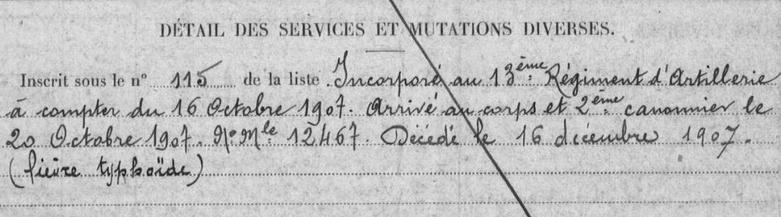 DÉTAIL DES SERVICES ET MUTATIONS DIVERSES.
Inscrit sous le n° 115 de la liste. Incorporé au 13ème Régiment d'Artillerie
à compter du 16 Octobre 1907. Arrivé au corps et 2ème canonnier le
20 Octobre 1907. No Mle 12467. Décédé le 16 décembre 1907.
(fièvre typhoïde)